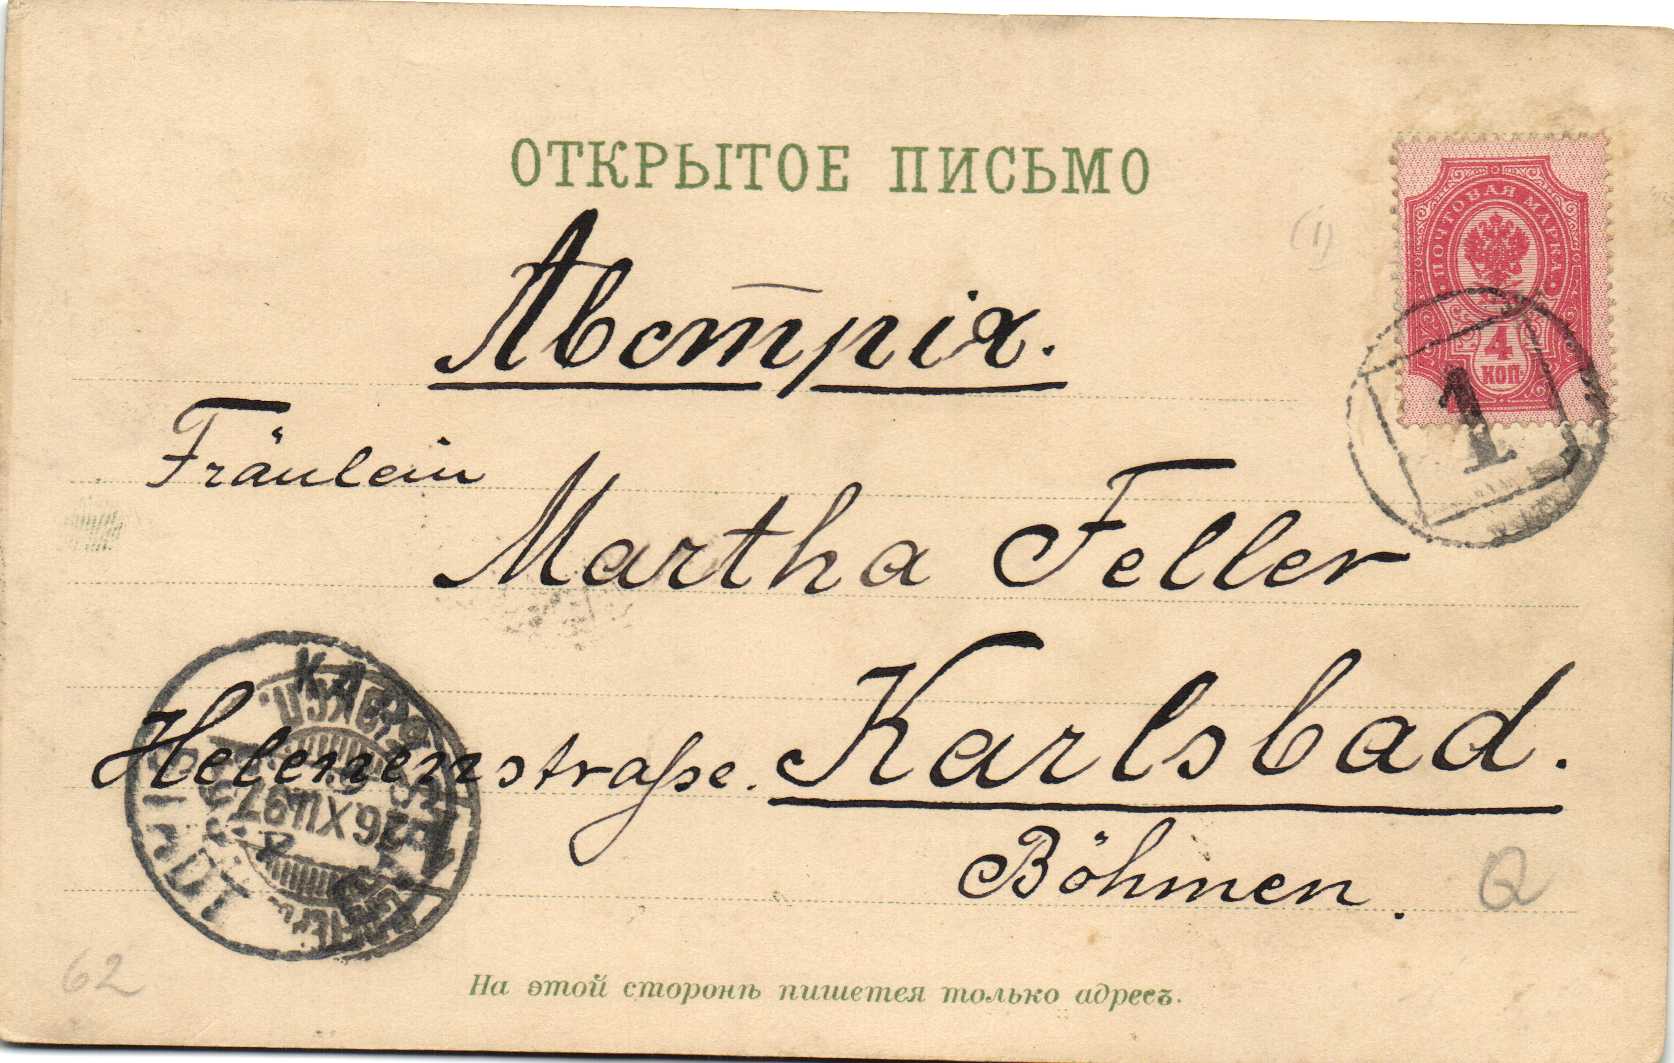 ОТКРЫТОЕ ПИСЬМО
ПОЧТОВАЯ МАРКА
4
КОП.
(1)
1
Австрія.
Fräulein
Martha Feller
Helenenstraße. Karlsbad.
Böhmen.
26 XII 97
Q
62
На этой сторонѣ пишется только адресъ.